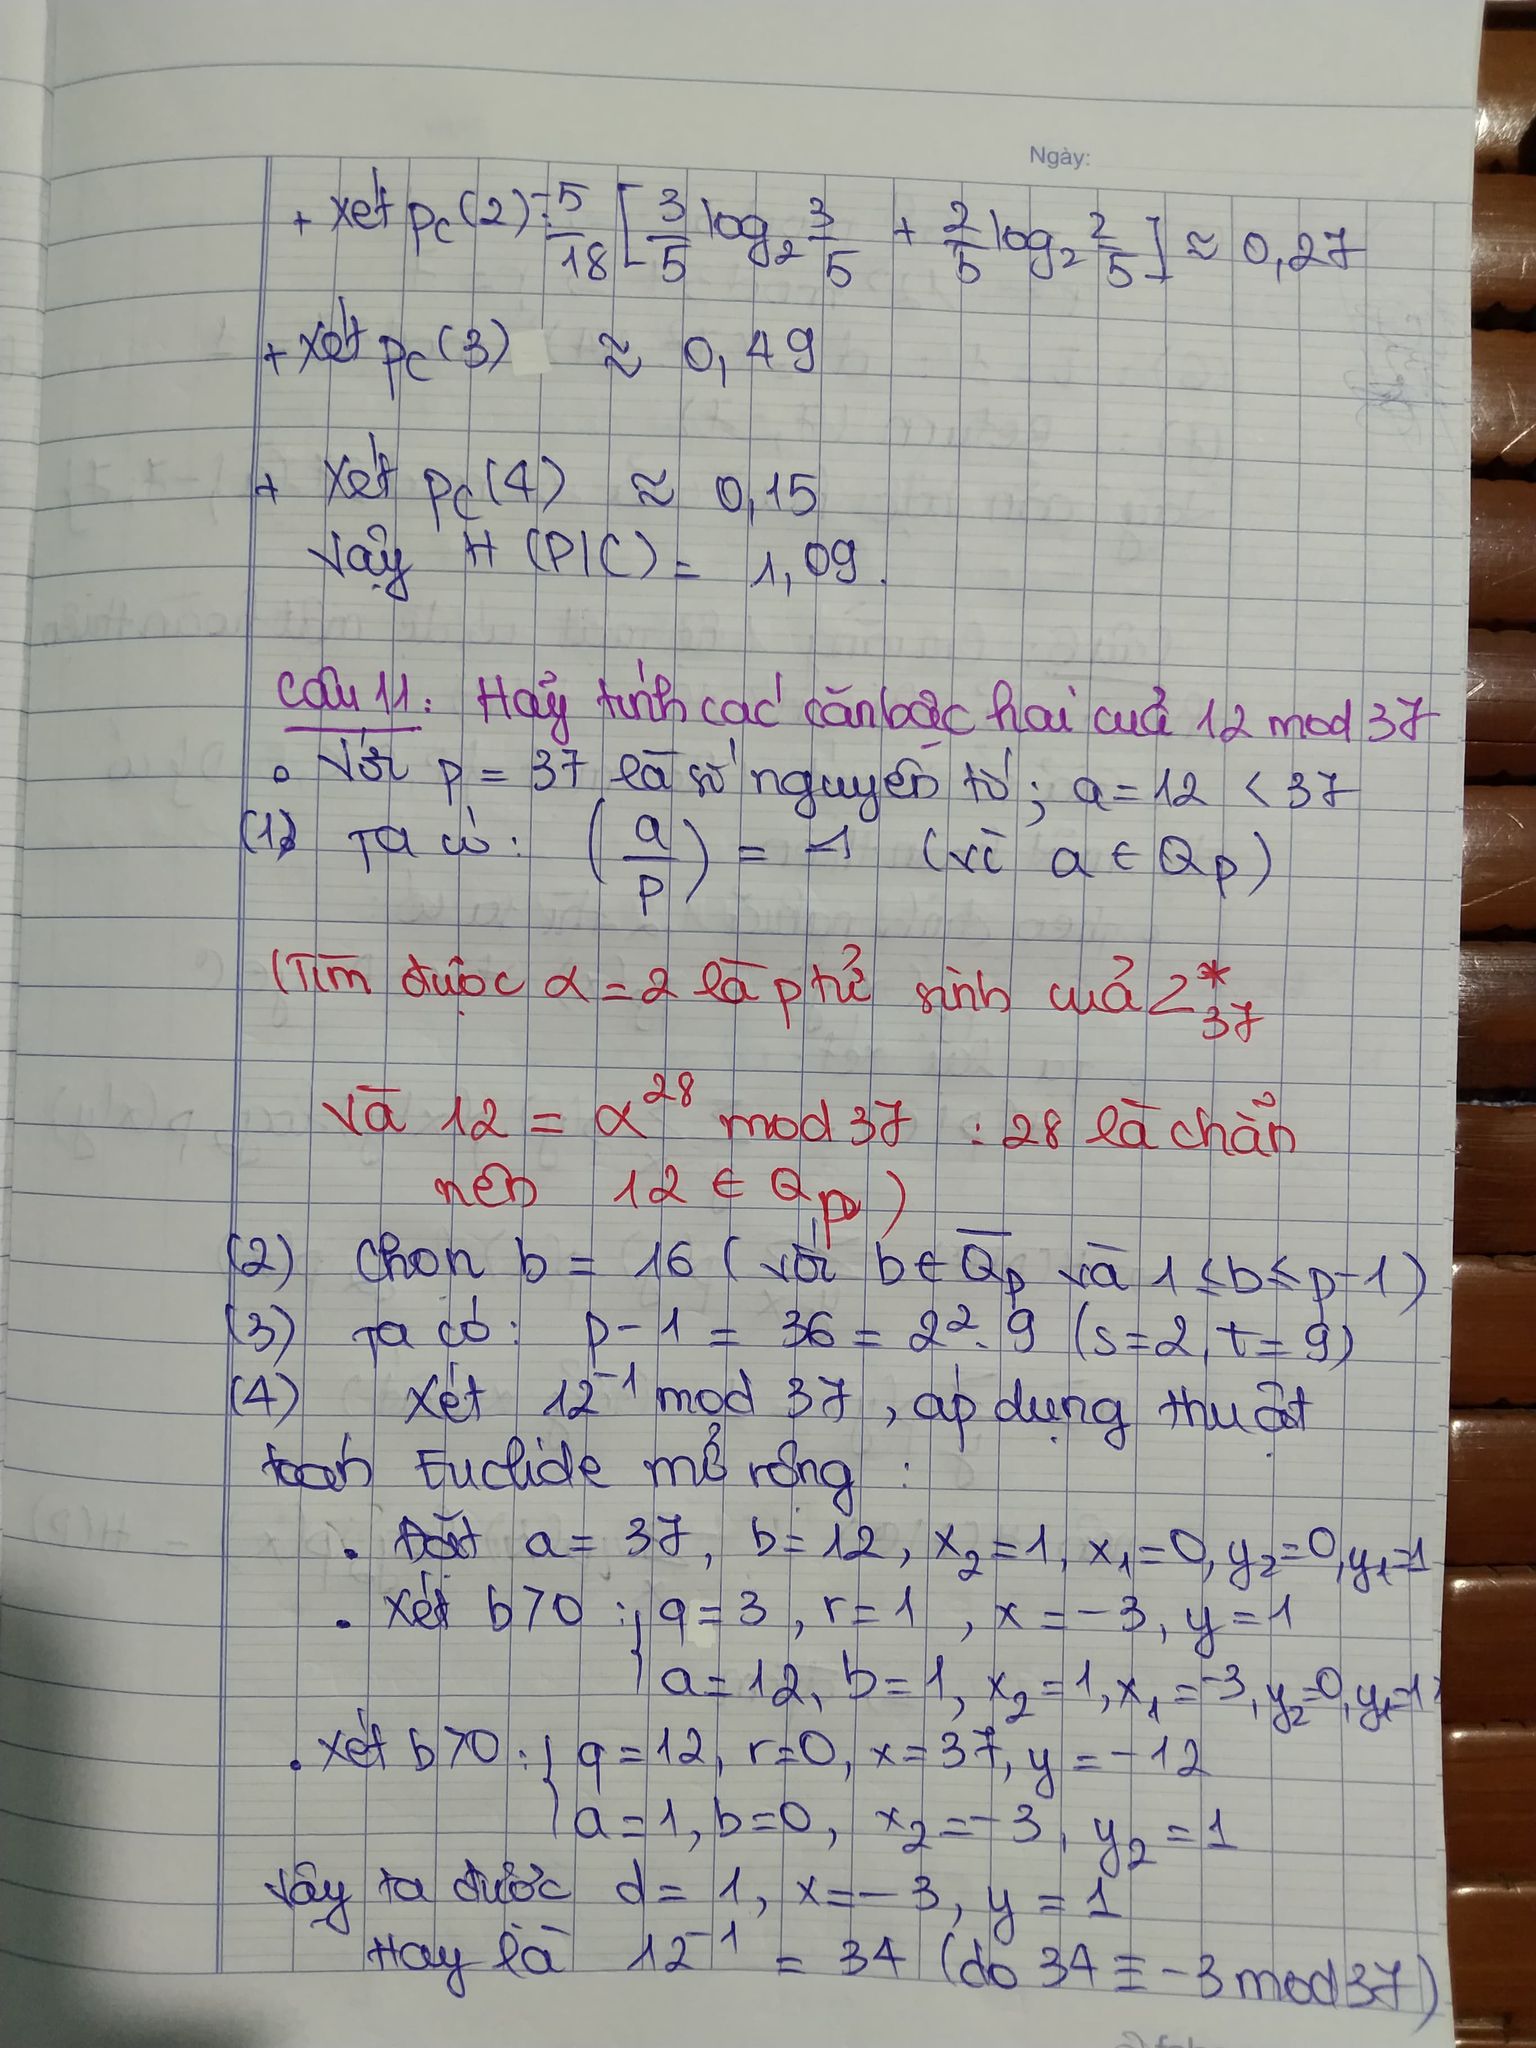 Ngày:
+ xét pc(2) = 5/18 [3/5 log₂ 3/5 + 2/5 log₂ 2/5] ≈ 0,27
+ xét pc(3) ≈ 0,49
+ xét pc(4) ≈ 0,15
Vậy H(P|C) = 1,09.
Câu 11: Hãy tính các căn bậc hai của 12 mod 37
• Với p = 37 là số nguyên tố; a = 12 < 37
(1) Ta có: (a/p) = 1 (vì a ∈ Qp)
(Tìm được α = 2 là p tử sinh của Z*₃₇
và 12 = α²⁸ mod 37 : 28 là chẵn
nên 12 ∈ Qp)
(2) Chọn b = 16 (với b ∈ Q̅p và 1 ≤ b ≤ p-1)
(3) Ta có: p-1 = 36 = 2².9 (s=2, t=9)
(4) Xét 12⁻¹ mod 37, áp dụng thuật
toán Euclide mở rộng:
• Đặt a = 37, b = 12, x₂=1, x₁=0, y₂=0, y₁=1
• Xét b>0 : { q=3, r=1, x=-3, y=1
a=12, b=1, x₂=1, x₁=-3, y₂=0, y₁=1
• Xét b>0 : { q=12, r=0, x=37, y=-12
a=1, b=0, x₂=-3, y₂=1
Vậy ta được d=1, x=-3, y=1
Hay là 12⁻¹ = 34 (do 34 ≡ -3 mod 37)